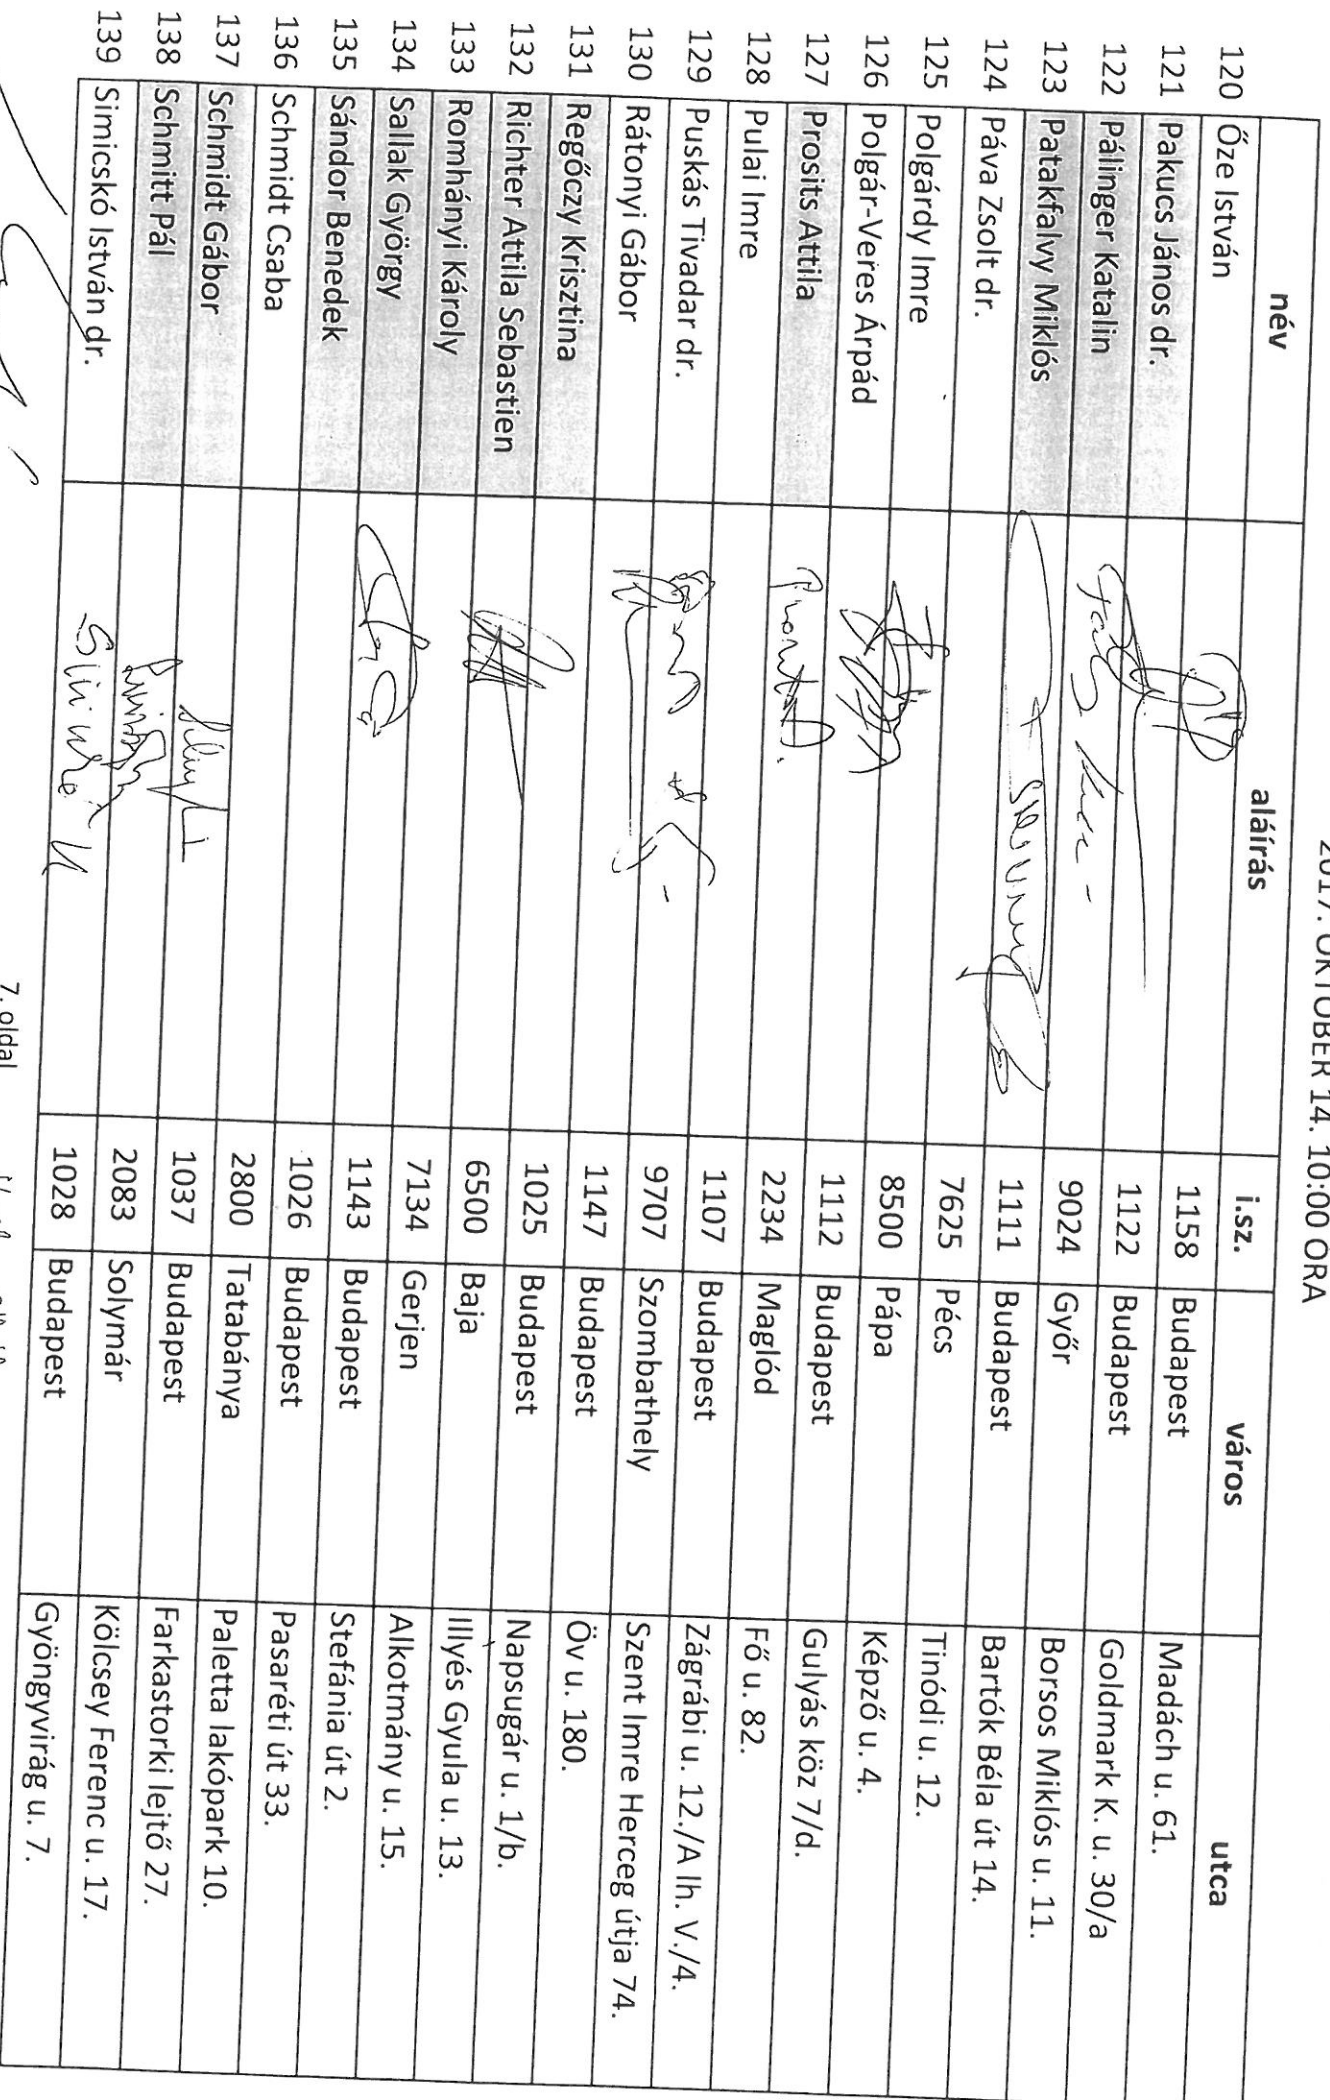 2017. OKTÓBER 14. 10:00 ÓRA
név aláírás i.sz. város utca
120 Őze István 1158 Budapest Madách u. 61.
121 Pakucs János dr. 1122 Budapest Goldmark K. u. 30/a
122 Pálinger Katalin 9024 Győr Borsos Miklós u. 11.
123 Patakfalvy Miklós 1111 Budapest Bartók Béla út 14.
124 Páva Zsolt dr. 7625 Pécs Tinódi u. 12.
125 Polgárdy Imre 8500 Pápa Képző u. 4.
126 Polgár-Veres Árpád 1112 Budapest Gulyás köz 7/d.
127 Prosits Attila 2234 Maglód Fő u. 82.
128 Pulai Imre 1107 Budapest Zágrábi u. 12./A lh. V./4.
129 Puskás Tivadar dr. 9707 Szombathely Szent Imre Herceg útja 74.
130 Rátonyi Gábor 1147 Budapest Öv u. 180.
131 Regőczy Krisztina 1025 Budapest Napsugár u. 1/b.
132 Richter Attila Sebastien 6500 Baja Illyés Gyula u. 13.
133 Romhányi Károly 7134 Gerjen Alkotmány u. 15.
134 Sallak György 1143 Budapest Stefánia út 2.
135 Sándor Benedek 1026 Budapest Pasaréti út 33.
136 Schmidt Csaba 2800 Tatabánya Paletta lakópark 10.
137 Schmidt Gábor 1037 Budapest Farkastorki lejtő 27.
138 Schmitt Pál 2083 Solymár Kölcsey Ferenc u. 17.
139 Simicskó István dr. 1028 Budapest Gyöngyvirág u. 7.
7. oldal